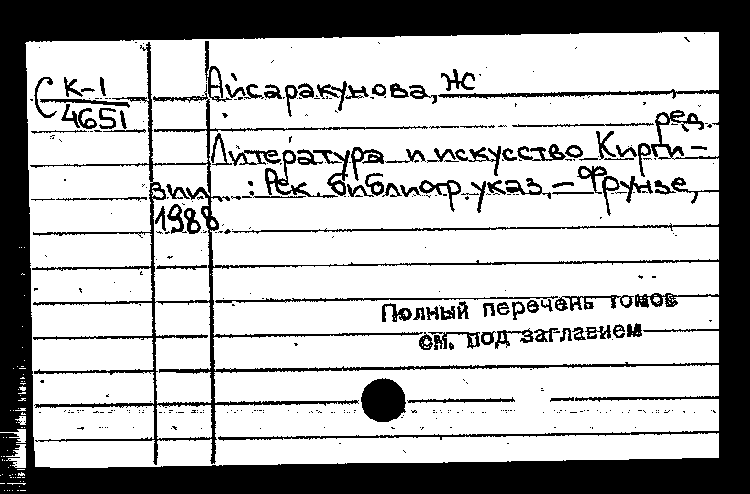 С К-1
4651
Айсаракунова, Ж
ред.
Литература и искусство Кирги-
зии... : Рек. библиогр. указ. – Фрунзе,
1988.
Полный перечень томов
см. под заглавием